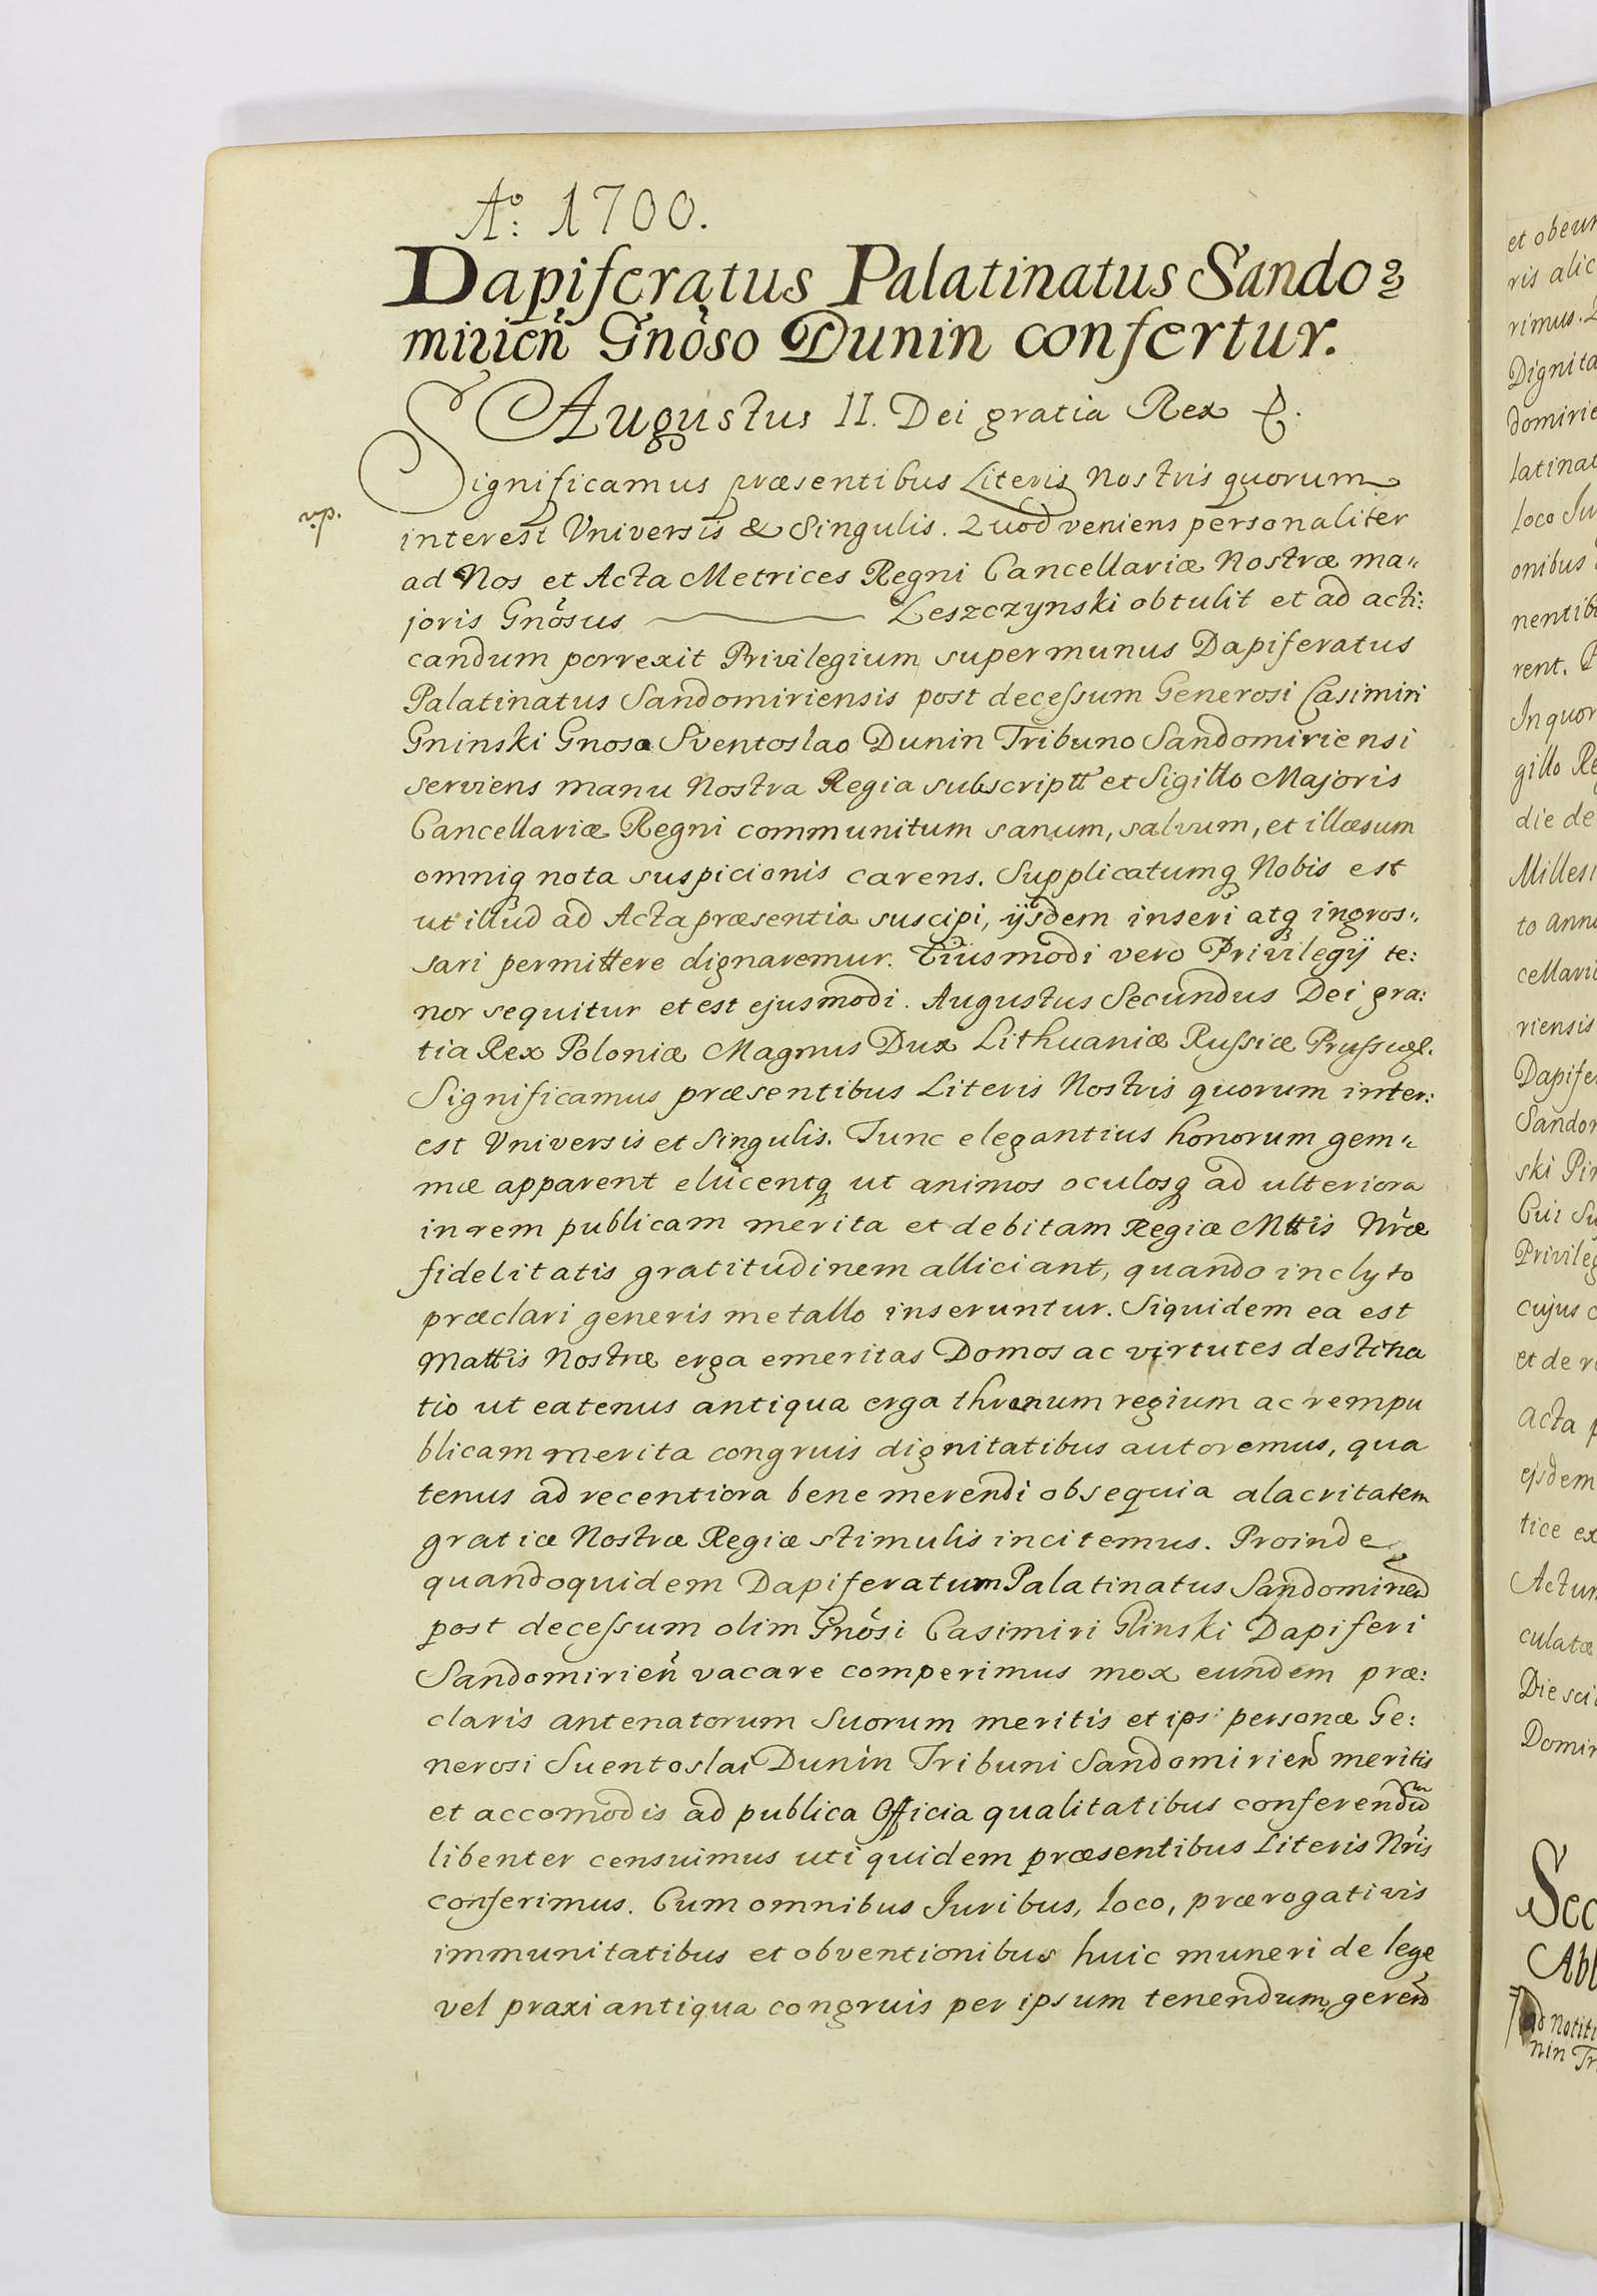 Aº: 1700.
Dapiferatus Palatinatus Sando=
mirien̄ Gnōso Dunin confertur.
Augustus II. Dei gratia Rex &.
Significamus præsentibus Literis Nostris quorum
vp.
interest Vniversis & Singulis. Quod veniens personaliter
ad Nos et Acta Metrices Regni Cancellariæ Nostræ ma"
joris Gnōsus ——— Leszczynski obtulit et ad acti:
candum porrexit Privilegium super munus Dapiferatus
Palatinatus Sandomiriensis post decessum Generosi Casimiri
Gninski Gnoso Sventoslao Dunin Tribuno Sandomiriensi
serviens manu Nostra Regia subscriptt et Sigillo Majoris
Cancellariæ Regni communitum sanum, salvum, et illæsum
omniq nota suspicionis carens. Supplicatumq Nobis est
ut illud ad Acta præsentia suscipi, ijsdem inseri atq ingros"
sari permittere dignaremur. Eiusmodi vero Privilegij te:
nor sequitur et est ejusmodi. Augustus Secundus Dei gra:
tia Rex Poloniæ Magnus Dux Lithuaniæ Russiæ Prussiæ &.
Significamus præsentibus Literis Nostris quorum inter:
est Vniversis et Singulis. Tunc elegantius honorum gem"
mæ apparent elucentq ut animos oculosq ad ulteriora
in rem publicam merita et debitam Regiæ Mttis Nræ
fidelitatis gratitudinem alliciant, quando inclyto
præclari generis metallo inseruntur. Siquidem ea est
Mattis Nostræ erga emeritas Domos ac virtutes destina
tio ut eatenus antiqua erga thronum regium ac rempu
blicam merita congruis dignitatibus autoremus, qua
tenus ad recentiora bene merendi obsequia alacritatem
gratiæ Nostræ Regiæ stimulis incitemus. Proinde
quandoquidem Dapiferatum Palatinatus Sandomirien
post decessum olim Gnōsi Casimiri Glinski Dapiferi
Sandomirien̄ vacare comperimus mox eundem præ:
claris antenatorum Suorum meritis et ipsi personæ Ge:
nerosi Suentoslai Dunin Tribuni Sandomirien meritis
et accomodis ad publica Officia qualitatibus conferendum
libenter censuimus uti quidem præsentibus Literis Nris
conferimus. Cum omnibus Juribus, loco, prærogativis
immunitatibus et obventionibus huic muneri de lege
vel praxi antiqua congruis per ipsum tenendum, gerend
et obeun
ris alic
rimus.
Dignita
domirie
latinat
loco Ju
onibus
nentib
rent. P
In quor
gillo Re
die de
Millesi
to anno
cellari
riensis
Dapife
Sandor
ski Pi
Cui Su
Privileg
cujus
et de r
acta p
ejsdem
tice ex
Actum
culatæ
Die sci
Domin
Sec
Abb
ad Notiti
nin Tr